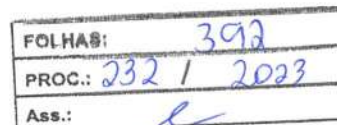 FOLHAS: 392
PROC.: 232 / 2023
Ass.: